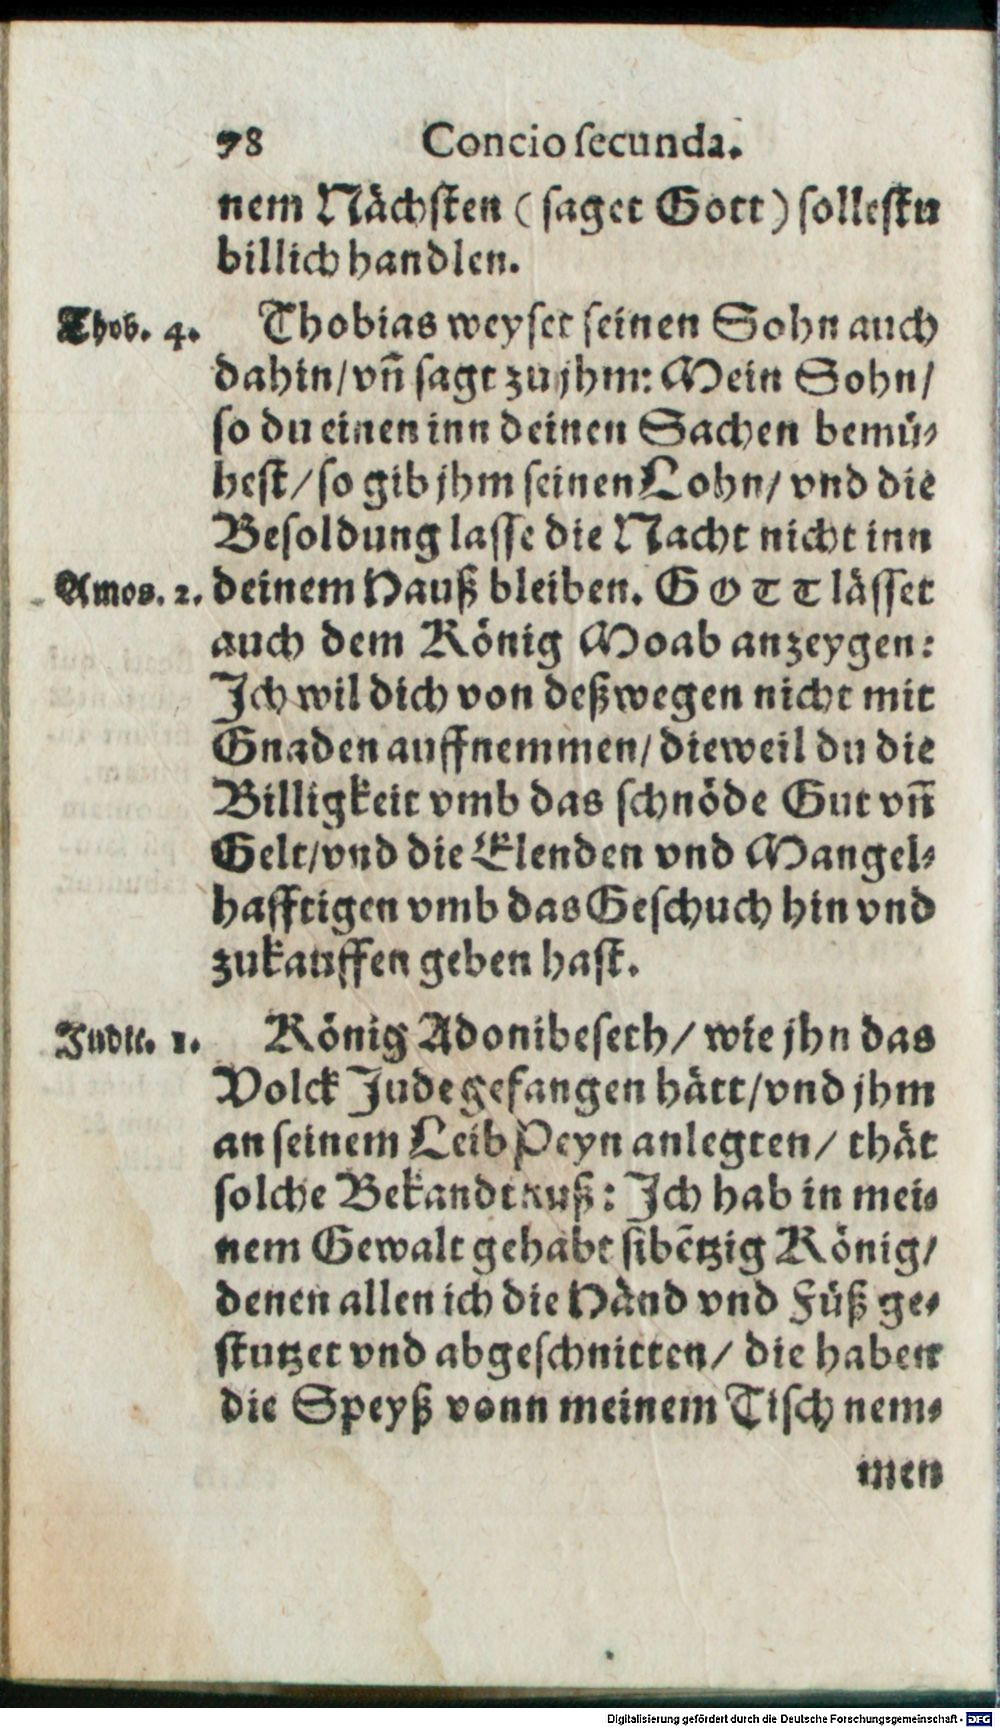 78 Concio secunda.
nem Nächsten (saget Gott) sollestu
billich handlen.
Thob. 4. Thobias weyset seinen Sohn auch
dahin/vñ sagt zu jhm: Mein Sohn/
so du einen inn deinen Sachen bemü⸗
hest/so gib jhm seinen Lohn/ vnd die
Besoldung lasse die Nacht nicht inn
Amos. 2. deinem Hauß bleiben. GOTT lässet
auch dem König Moab anzeygen:
Ich wil dich von deßwegen nicht mit
Gnaden auffnemmen/dieweil du die
Billigkeit vmb das schnöde Gut vñ
Gelt/vnd die Elenden vnd Mangel⸗
hafftigen vmb das Geschuch hin vnd
zukauffen geben hast.
Judic. 1. König Adonibeseth/ wie jhn das
Volck Jude gefangen hätt/vnd jhm
an seinem Leib Peyn anlegten/ thät
solche Bekandtnuß: Ich hab in mei⸗
nem Gewalt gehabt sibẽtzig König/
denen allen ich die Händ vnd Füß ge⸗
stutzet vnd abgeschnitten/ die haben
die Speyß vonn meinem Tisch nem⸗
men
Digitalisierung gefördert durch die Deutsche Forschungsgemeinschaft - DFG